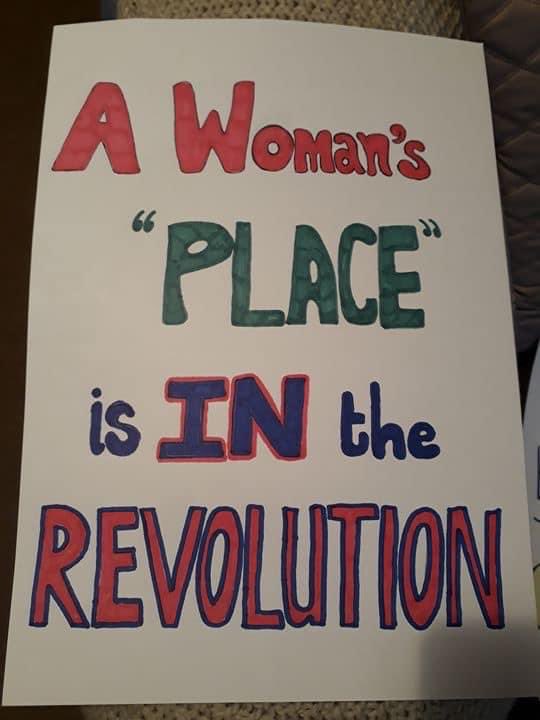 A Woman's
"PLACE"
is IN the
REVOLUTION